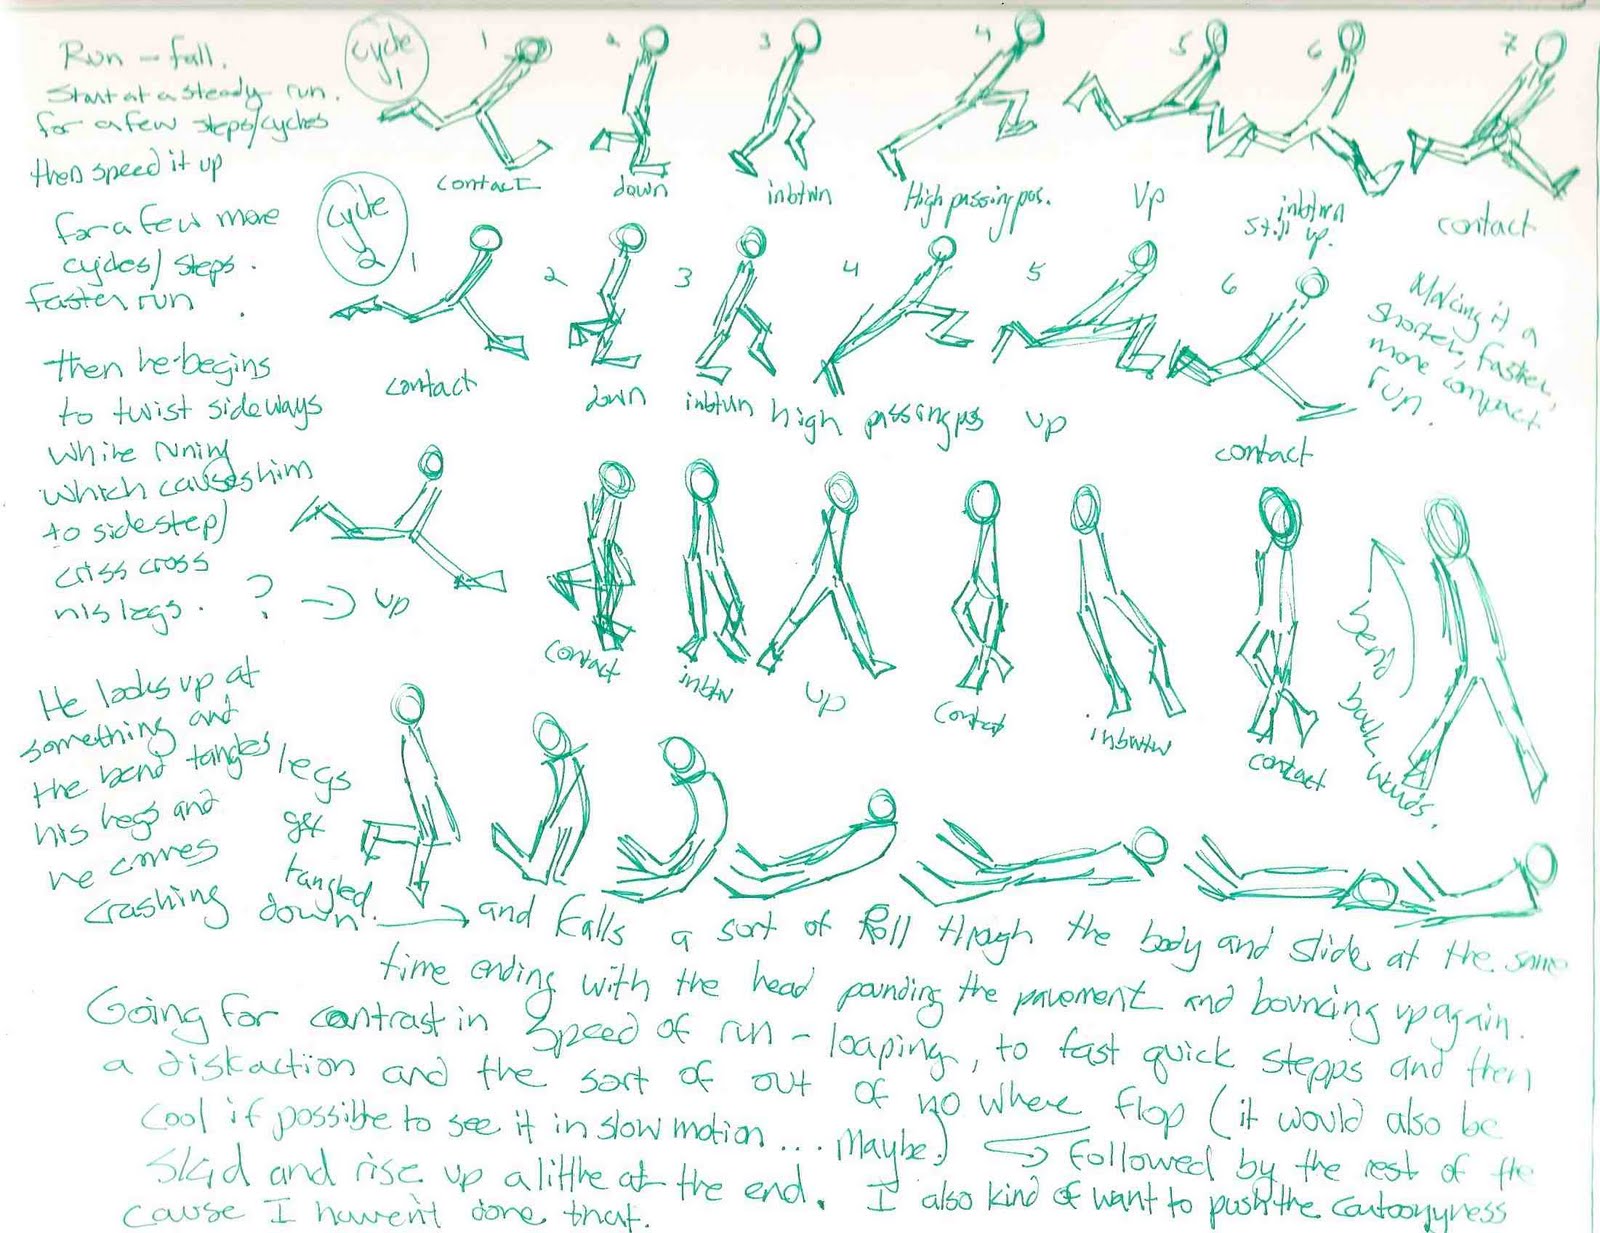 Run - fall.
Start at a steady run.
for a few steps/cycles
then speed it up
cycle 1
1 2 3 4 5 6 7
contact down inbtwn High passing pos. Up inbtwn still up. contact
for a few more
cycles/steps.
faster run
cycle 2
1 2 3 4 5 6
contact down inbtwn high passing pos up contact
Making it a
shorter, faster,
more compact
run.
then he begins
to twist sideways
while runing
which causes him
to sidestep/
criss cross
his legs. ? → up
contact inbtw up contact inbwtw contact
bend backwards.
He looks up at
something and
the bend tangles
his legs and
he comes
crashing down
legs
get
tangled.
→ and falls a sort of Roll through the body and slide at the same
time ending with the head pounding the pavement and bouncing up again.
Going for contrast in speed of run - loaping, to fast quick stepps and then
a distraction and the sort of out of no where flop (it would also be
cool if possible to see it in slow motion ... Maybe.) → followed by the rest of the
skid and rise up a little at the end. I also kind of want to push the cartoonyness
cause I haven't done that.